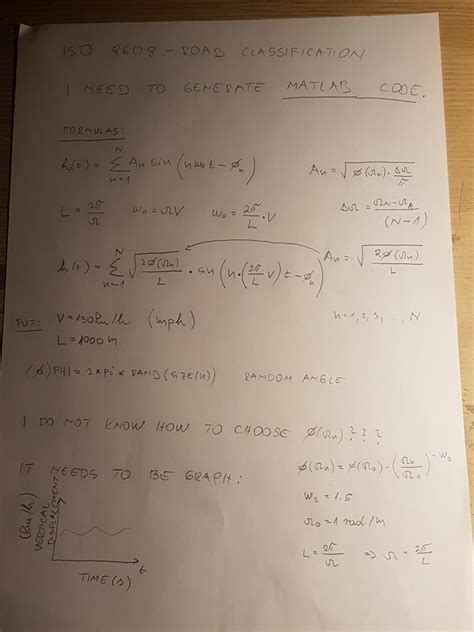 ISO 8608 - ROAD CLASSIFICATION
I NEED TO GENERATE MATLAB CODE.
FORMULAS:
h(t) = Σ_{n=1}^{N} An sin (nω₀t - ϕn)    An = √(ϕ(Ωn) · ΔΩ/π)
L = 2π/Ω    ω₀ = ΩV    ω₀ = 2π/L · V    ΔΩ = (ΩN - Ω1)/(N-1)
h(t) = Σ_{n=1}^{N} √(2ϕ(Ωn)/L) · sin (n·(2π/L V)t - ϕn)    An = √(2ϕ(Ωn)/L)
PUT: V = 130 km/h (mph)    n = 1, 2, 3, ..., N
L = 1000 m
(ϕ) PHI = 2*pi* RAND(SIZE(n))    RANDOM ANGLE
I DO NOT KNOW HOW TO CHOOSE ϕ(Ωn)???
IT NEEDS TO BE GRAPH:    ϕ(Ωn) = ϕ(Ω₀) · (Ωn/Ω₀)^{-W2}
W2 = 1.5
Ω₀ = 1 rad/m
L = 2π/Ω ⇒ Ω = 2π/L
VERTICAL
DISPLACEMENT
t
TIME(s)